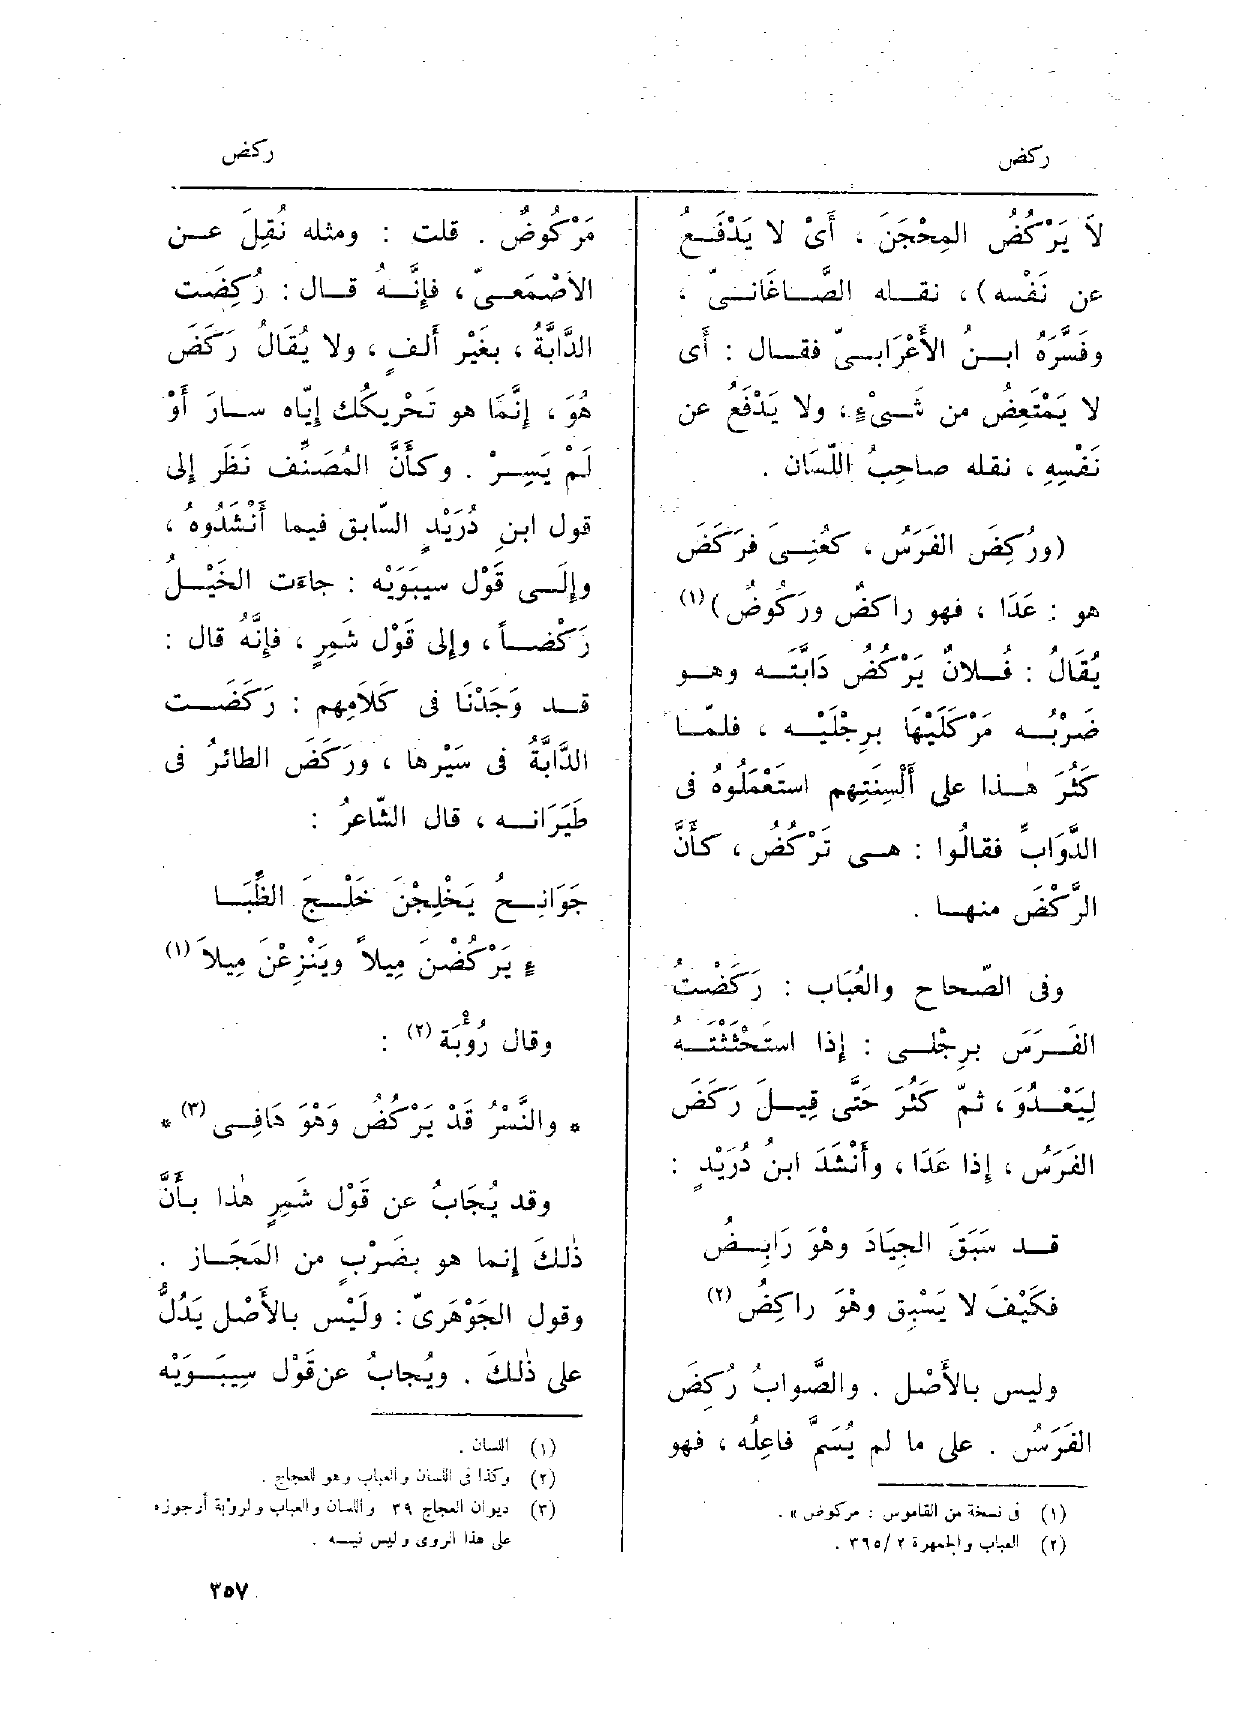 ركض
ركض
لاَ يَرْكُضُ المِحْجَنَ ، أَىْ لا يَدْفَـعُ
عن نَفْسه) ، نقـله الصَّـاغَانـىّ ،
وفَسَّرَهُ ابـنُ الأَعْرَابـىّ فقـال : أَى
لا يَمْتَعِضُ من شَـىْءٍ ، ولا يَدْفَعُ عن
نَفْسِهِ ، نقله صاحِبُ اللّسَان .
(ورُكِضَ الفَرَسُ ، كعُنِـىَ فرَكَضَ
هو : عَدَا ، فهو راكضٌ ورَكُوضٌ) (١)
يُقَالُ : فُـلانٌ يَرْكُضُ دَابَّتَـه وهـو
ضَرْبُـه مَرْكَلَيْهَا بِرِجْلَيْـه ، فلمّـا
كَثُرَ هٰـذا على أَلْسِنَتِهِم استَعْمَلُوهُ فى
الدَّوَابِّ فقالُوا : هـى تَرْكُضُ ، كأَنَّ
الرَّكْضَ منهـا .
وفى الصّحاح والعُبَاب : رَكَضْتُ
الفَـرَسَ بِرِجْلـى : إِذا اسْتَحْثَثْتَـهُ
لِيَعْـدُوَ ، ثمّ كَثُرَ حَتَّى قِيـلَ رَكَضَ
الفَرَسُ ، إِذا عَدَا ، وأَنْشَدَ ابنُ دُرَيْدٍ :
قـد سَبَقَ الجِيَادَ وهْوَ رَابِـضُ
فكَيْفَ لا يَسْبِق وهْوَ راكِضُ (٢)
وليس بالأَصْل . والصَّوابُ رُكِضَ
الفَرَسُ . على ما لم يُسَمَّ فاعِلُه ، فهو
(١) فى نسخة من القاموس : مركوض » .
(٢) العباب والجمهرة ٢ /٣٦٥ .
مَرْكُوضٌ . قلت : ومثله نُقِلَ عـن
الأَصْمَعـىّ ، فإِنَّـهُ قـال : رُكِضَت
الدَّابَّةُ ، بغَيْرِ أَلفٍ ، ولا يُقَالُ رَكَضَ
هُوَ ، إِنَّمَا هو تَحْرِيكُك إِيّاه سـارَ أَوْ
لَمْ يَسِـرْ . وكأَنَّ المُصَنِّف نَظَر إِلى
قول ابنِ دُرَيْدٍ السّابق فيما أَنْشَدُوهُ ،
وإِلَـى قَوْل سِيبَوَيْه : جاءَت الخَيْـلُ
رَكْضـاً ، وإِلى قَوْل شَمِرٍ ، فإِنَّهُ قال :
قـد وَجَدْنَا فى كَلاَمِهِم : رَكَضَـت
الدَّابَّةُ فى سَيْرِها ، ورَكَضَ الطائرُ فى
طَيَرَانـه ، قال الشّاعرُ :
جَوَانِـحُ يَخْلِجْنَ خَلْـجَ الظِّبَـا
ءِ يَرْكُضْنَ مِيلاً ويَنْزِعْنَ مِيلاَ (١)
وقال رُؤْبَة (٢) :
* والنَّسْرُ قَدْ يَرْكُضُ وَهْوَ هَافِـى (٣) *
وقد يُجَابُ عن قَوْل شَمِرٍ هٰذا بـأَنَّ
ذٰلكَ إِنما هو بضَرْبٍ من المَجَـاز .
وقول الجَوْهَرىّ : ولَيْس بالأَصْل يَدُلُّ
على ذٰلكَ . ويُجابُ عن قَوْل سِيبَـوَيْه
(١) اللسان .
(٢) وكذا فى اللسان والعباب وهو للعجاج .
(٣) ديوان العجاج ٣٩ واللسان والعباب ولرؤبة أرجوزه
على هذا الروى وليس فيـه .
٣٥٧